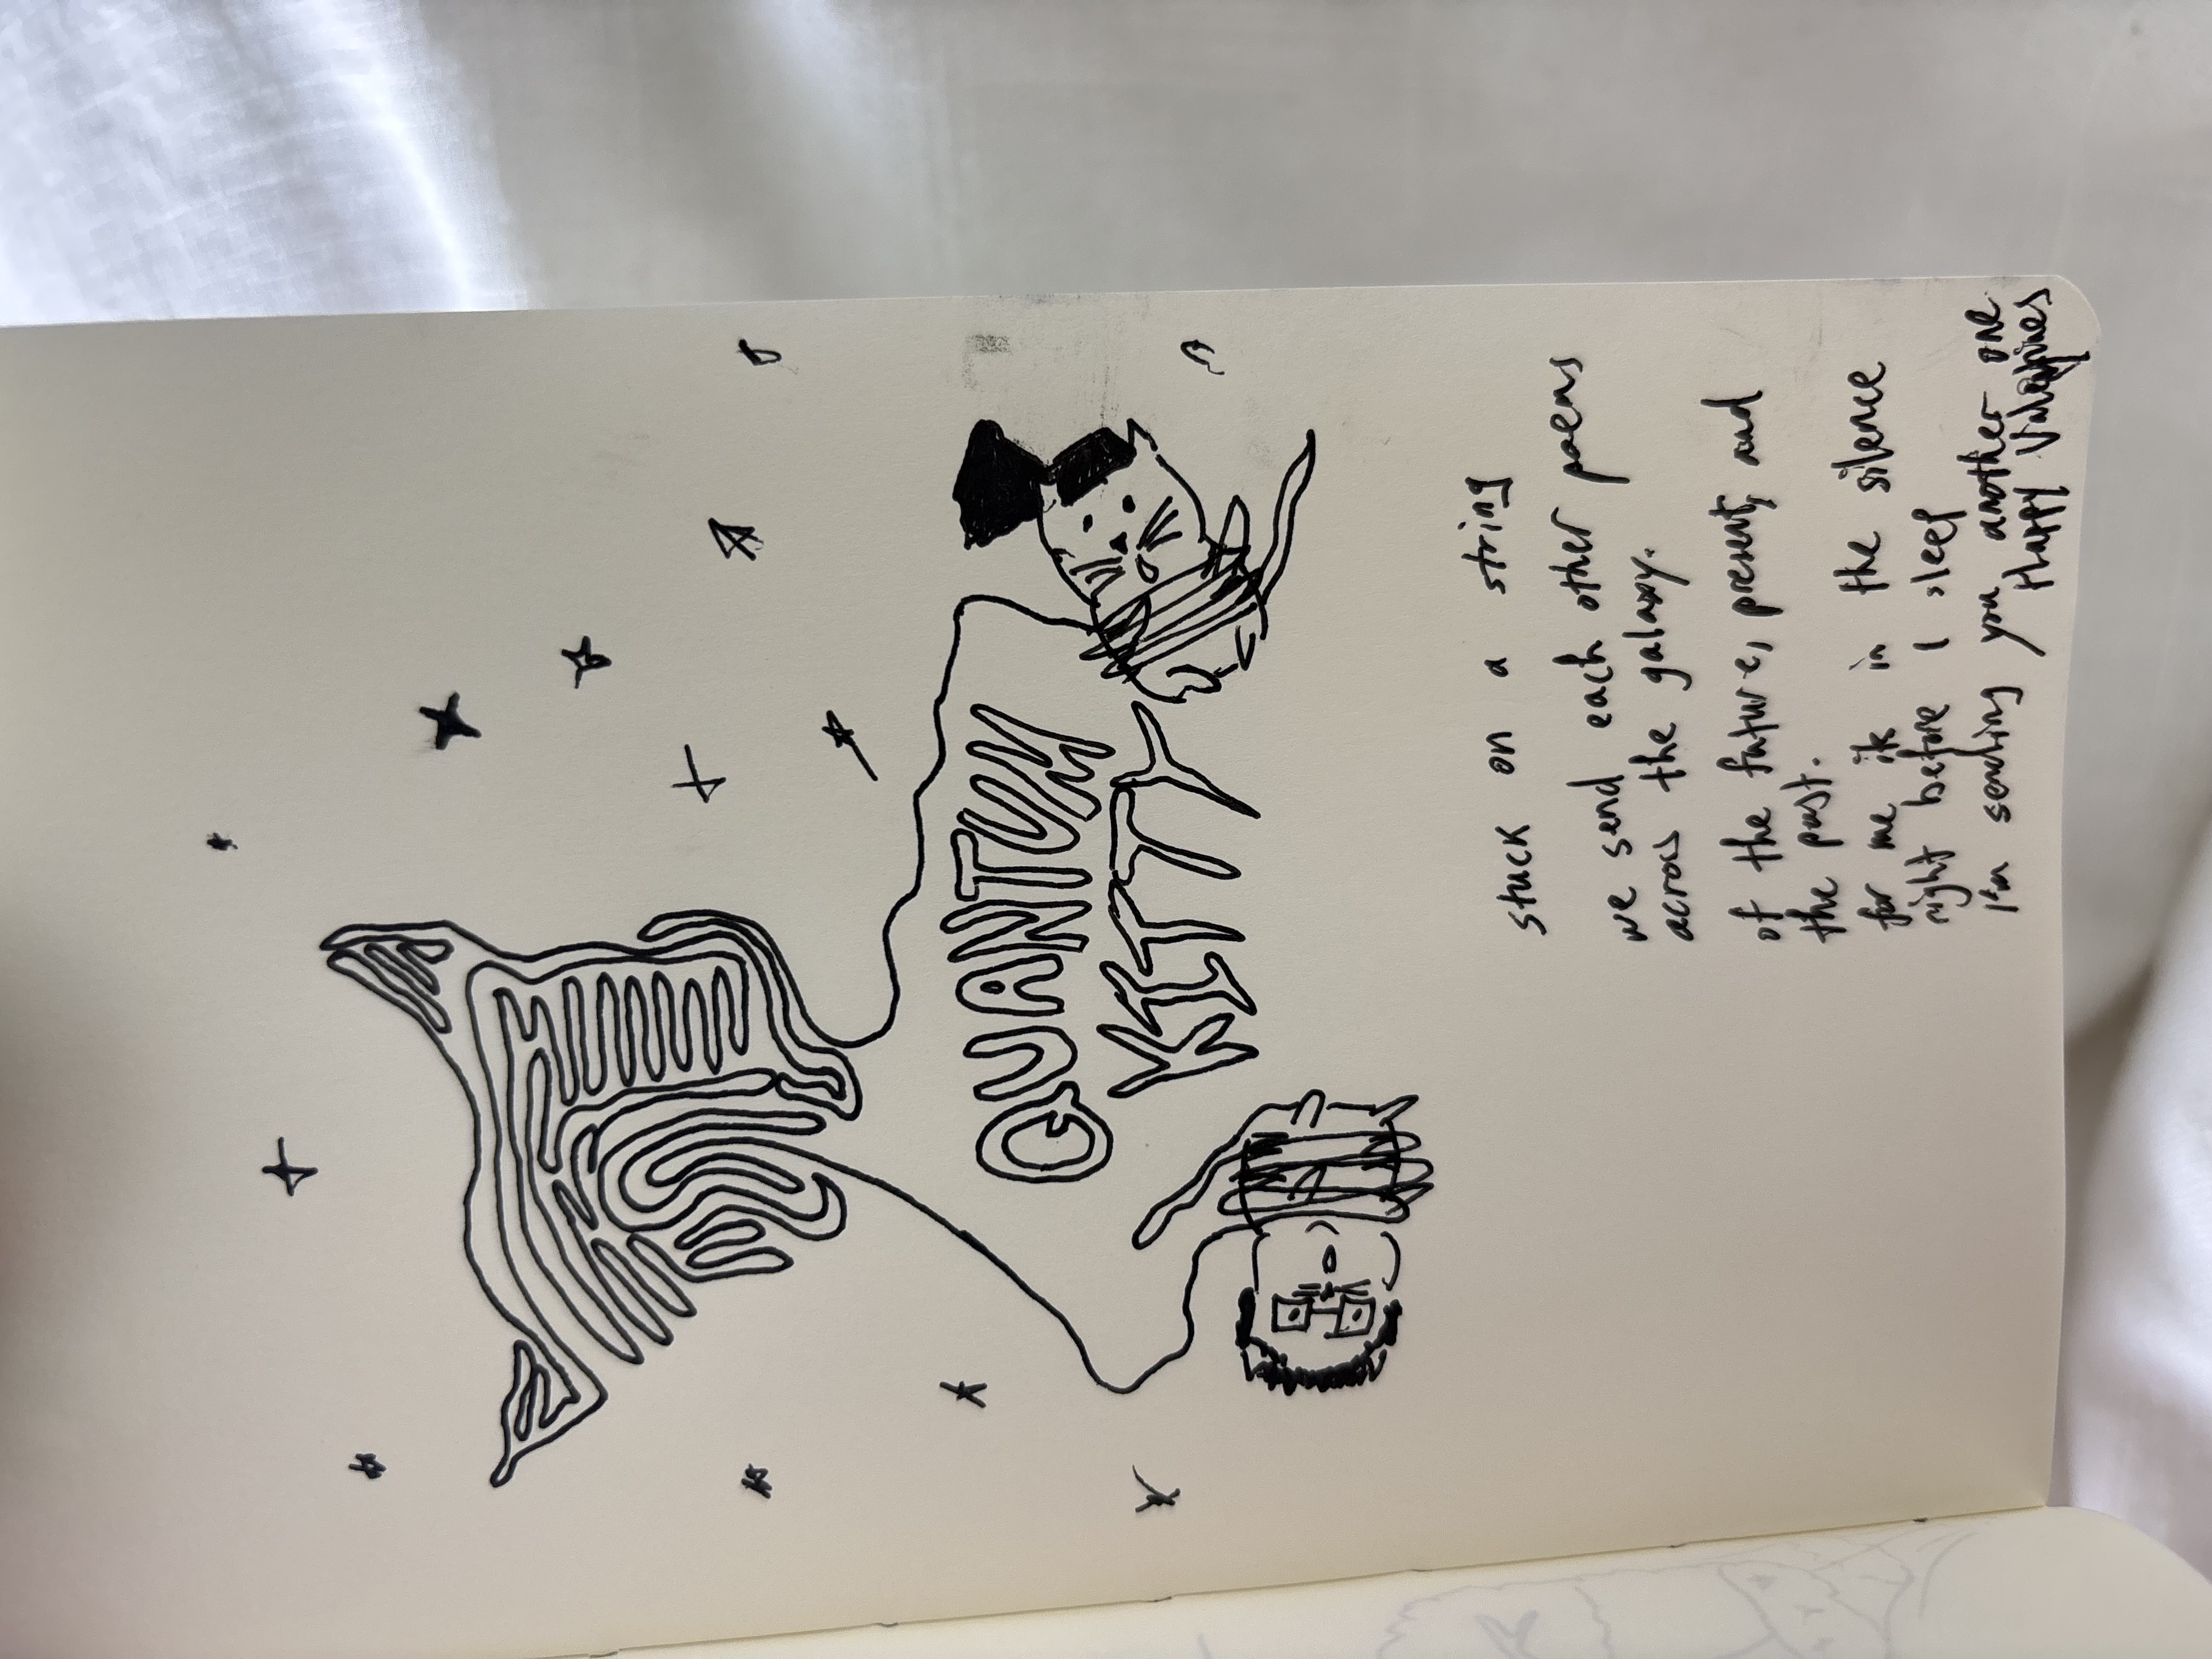 QUANTUM
KITTY
stuck on a string
we send each other poems
across the galaxy.
of the future, present, and
the past.
for me in the silence
right before I sleep
I'm sending you another one
Happy Valentines